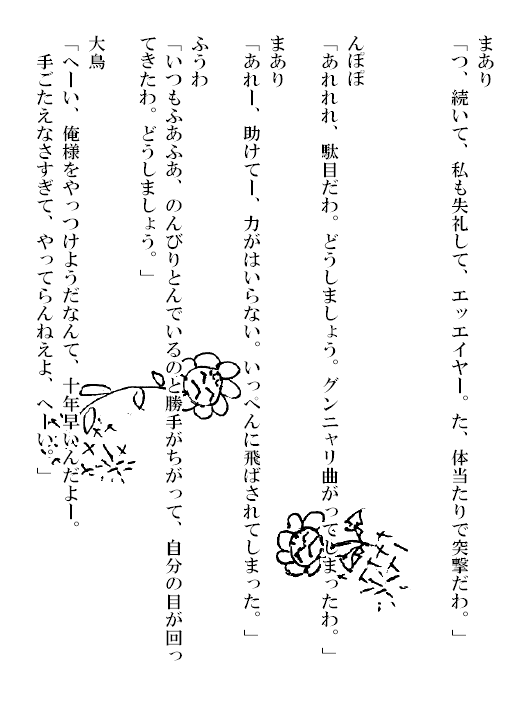 まあり
「つ、続いて、私も失礼して、エッエイヤー。た、体当たりで突撃だわ。」
んぽぽ
「あれれれ、駄目だわ。どうしましょう。グンニャリ曲がってしまったわ。」
まあり
「あれー、助けてー、力がはいらない。いっぺんに飛ばされてしまった。」
ふうわ
「いつもふあふあ、のんびりとんでいるのと勝手がちがって、自分の目が回っ
てきたわ。どうしましょう。」
大鳥
「へーい、俺様をやっつけようだなんて、十年早いんだよー。
手ごたえなさすぎて、やってらんねえよ、へーい。」